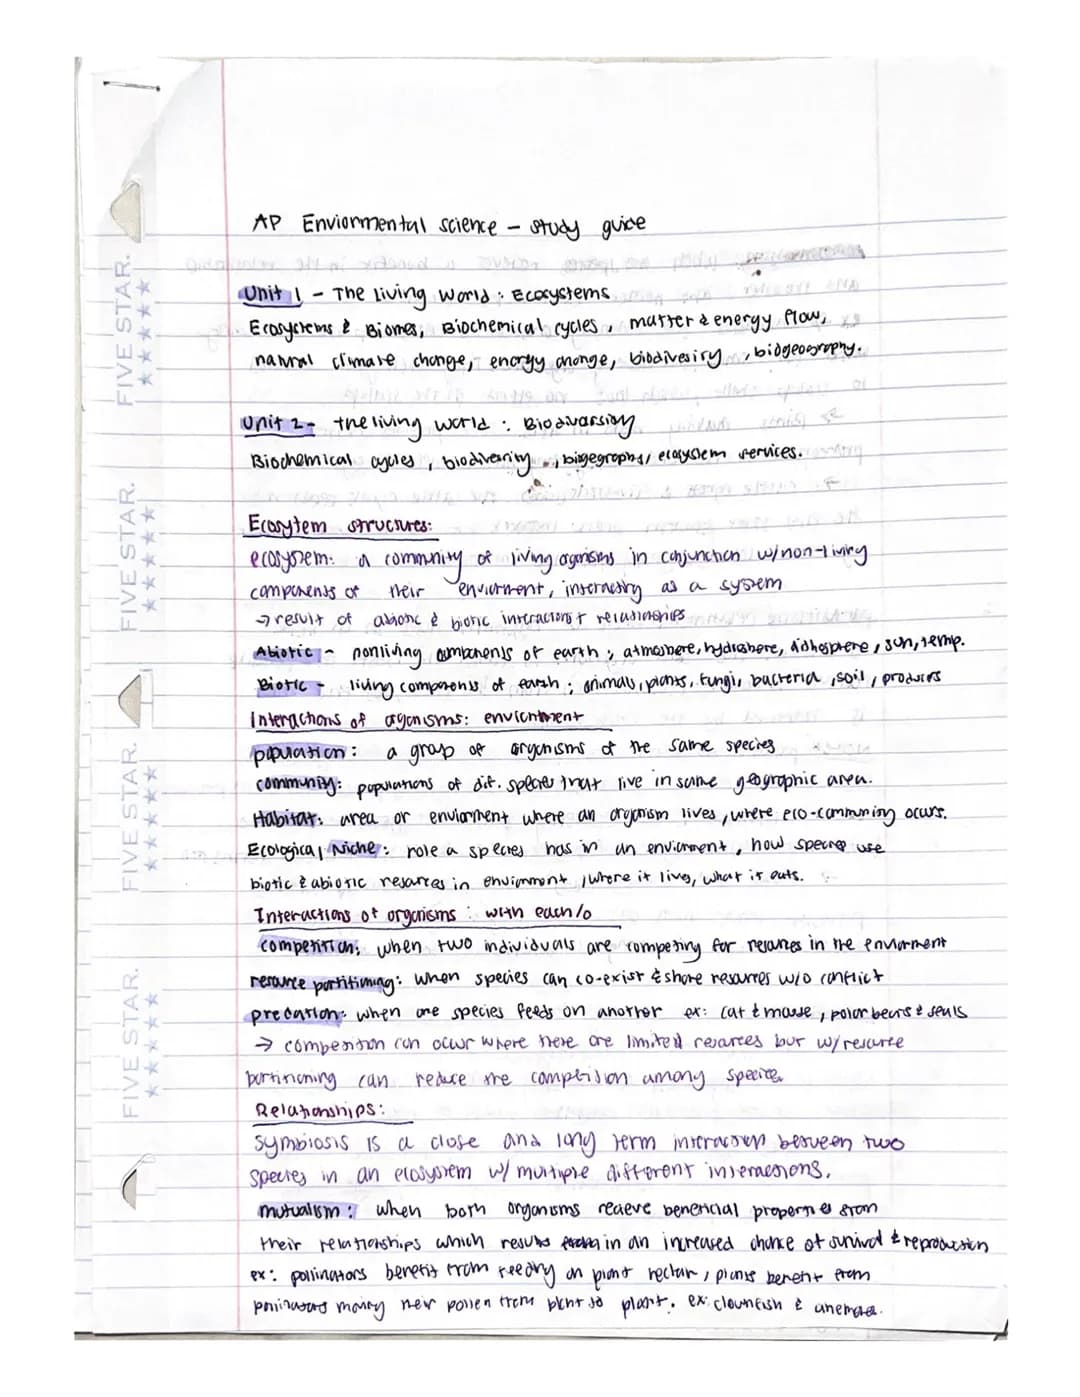 AP Enviormental science – study guide
Unit 1 – The Living World : Ecosystems
Ecosystems & Biomes, Biochemical cycles, matter & energy flow,
natural climate change, energy change, biodivesiry, biogeography.
Unit 2- the living world : Biodiversity
Biochemical cycles, biodiversity, biogegraphy, ecosystem services.
Ecosytem structures:
ecosystem: a community of living ogonisms in conjunction w/non-living
components of their enviorment, interacting as a system
→ result of abiotic & biotic interactions + relationships
Abiotic – nonliving components of earth ; atmosphere, hydrosphere, lithosphere, sun, temp.
Biotic – living components of earth ; animals, plants, fungi, bacteria, soil, producers
Interactions of organisms: enviornment
population: a group of organisms of the same species
community: populations of dif. species that live in same geographic area.
Habitat: area or enviorment where an organism lives, where eco-commining occurs.
Ecological Niche: role a species has in an enviorment, how species use
biotic & abiotic resources in enviornment, where it lives, what it eats.
Interactions of organisms : with each/o
competition: when two individuals are competing for resources in the enviorment
resource partitioning: when species can co-exist & share resources w/o conflict
predation: when one species feeds on another ex: cat & mouse, polar bears & seals
→ competition can occur where there are limited resources but w/resource
partitioning can reduce the competision among species.
Relationships:
Symbiosis is a close and long term interaction between two
species in an ecosystem w/ multiple different interactions.
mutualism: when both organisms recieve beneficial properties from
their relationships which results in an increased chance of survival & reproduction
ex: pollinators benefit from feeding on plant nectar, plants benefit from
pollinators moving their pollen from plant to plant. ex: clownfish &
FIVE STAR.
FIVE STAR.
FIVE STAR.
FIVE STAR.